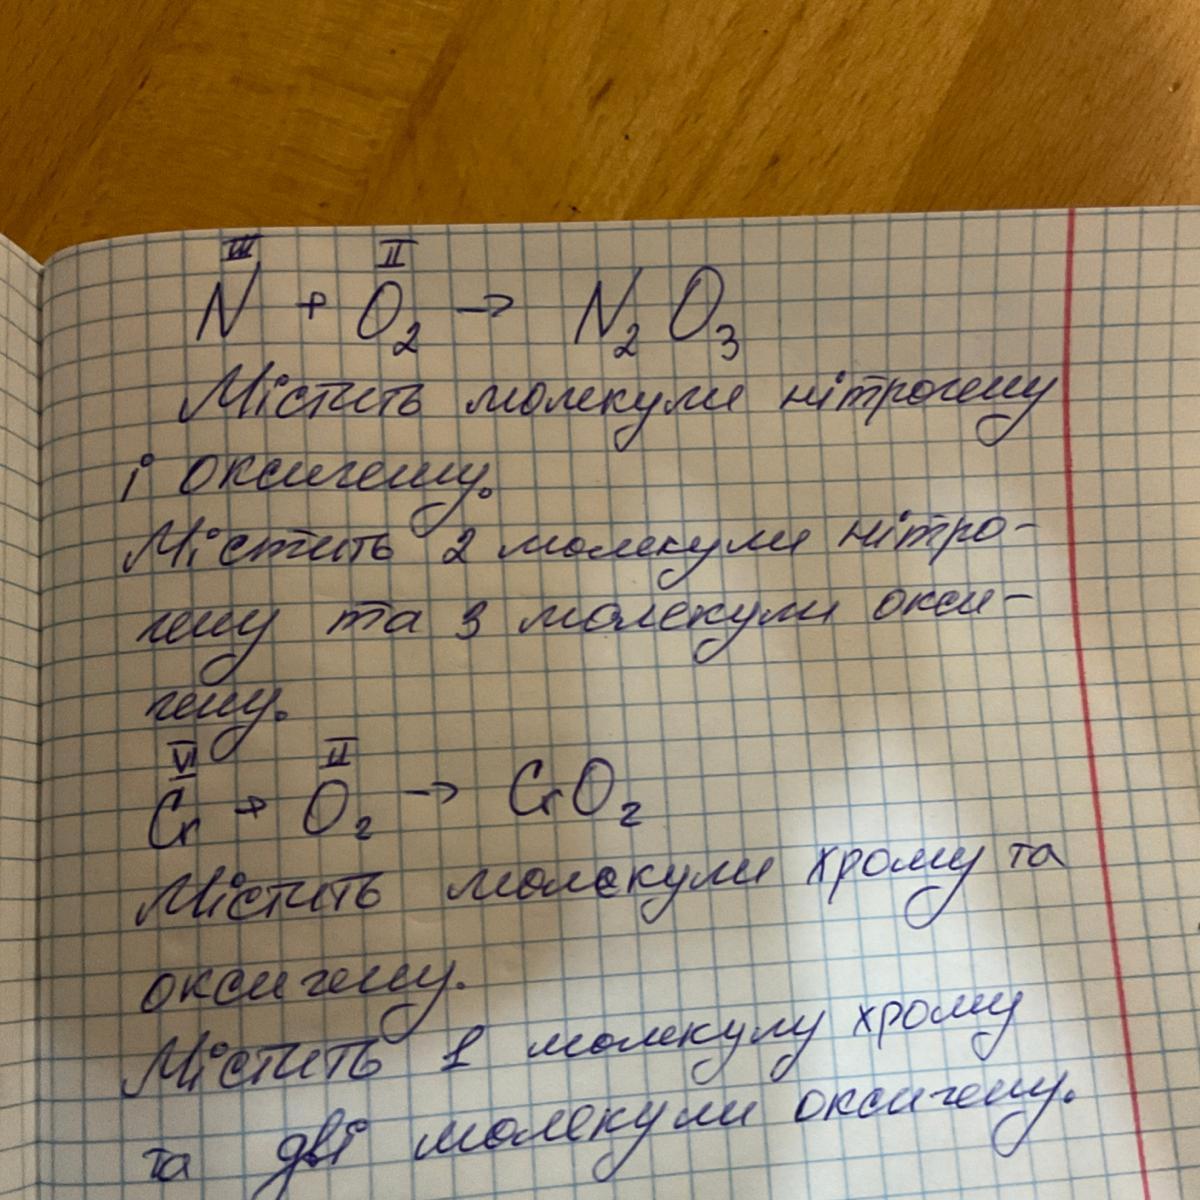 III II
N + O₂ → N₂O₃
Містить молекули нітрогену
і оксигену.
Містить 2 молекули нітро-
гену та 3 молекули окси-
гену.
VI II
Cr + O₂ → CrO₂
Містить молекули хрому та
оксигену.
Містить 1 молекулу хрому
та дві молекули оксигену.